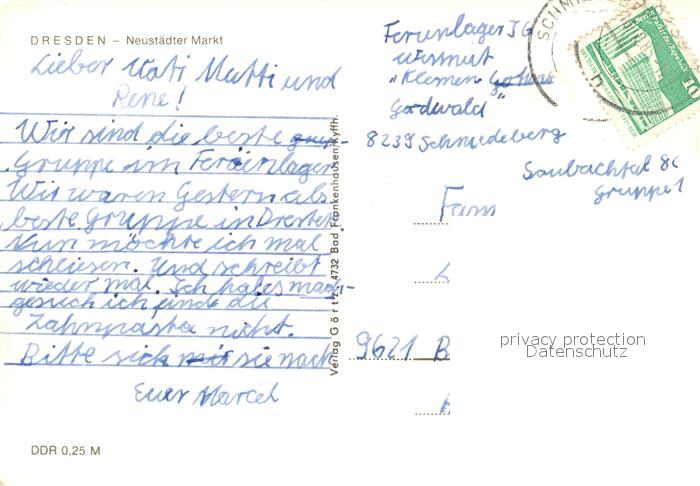 DRESDEN – Neustädter Markt
Lieber Vati Mutti und
Rene!
Wir sind die beste
Gruppe im Ferienlager
Wir waren Gestern als
beste Gruppe in Dresten.
Nun möchte ich mal
schliesen. Und schreibt
wieder mal. Ich habes
gesuch ich finde die
Zahnpasta nicht.
Bitte sie nach
Euer Marcel
DDR 0,25 M
Verlag Göritz, 4732 Bad Frankenhausen/Kyffh.
Ferienlager IG
Wismut
"Klemen
Godwald"
8239 Schmiedeberg
Saubachtal 8c
Gruppe 1
Fam
9621 B
privacy protection
Datenschutz
SCHMIEDEB
Berlin
Palast der Republik
10